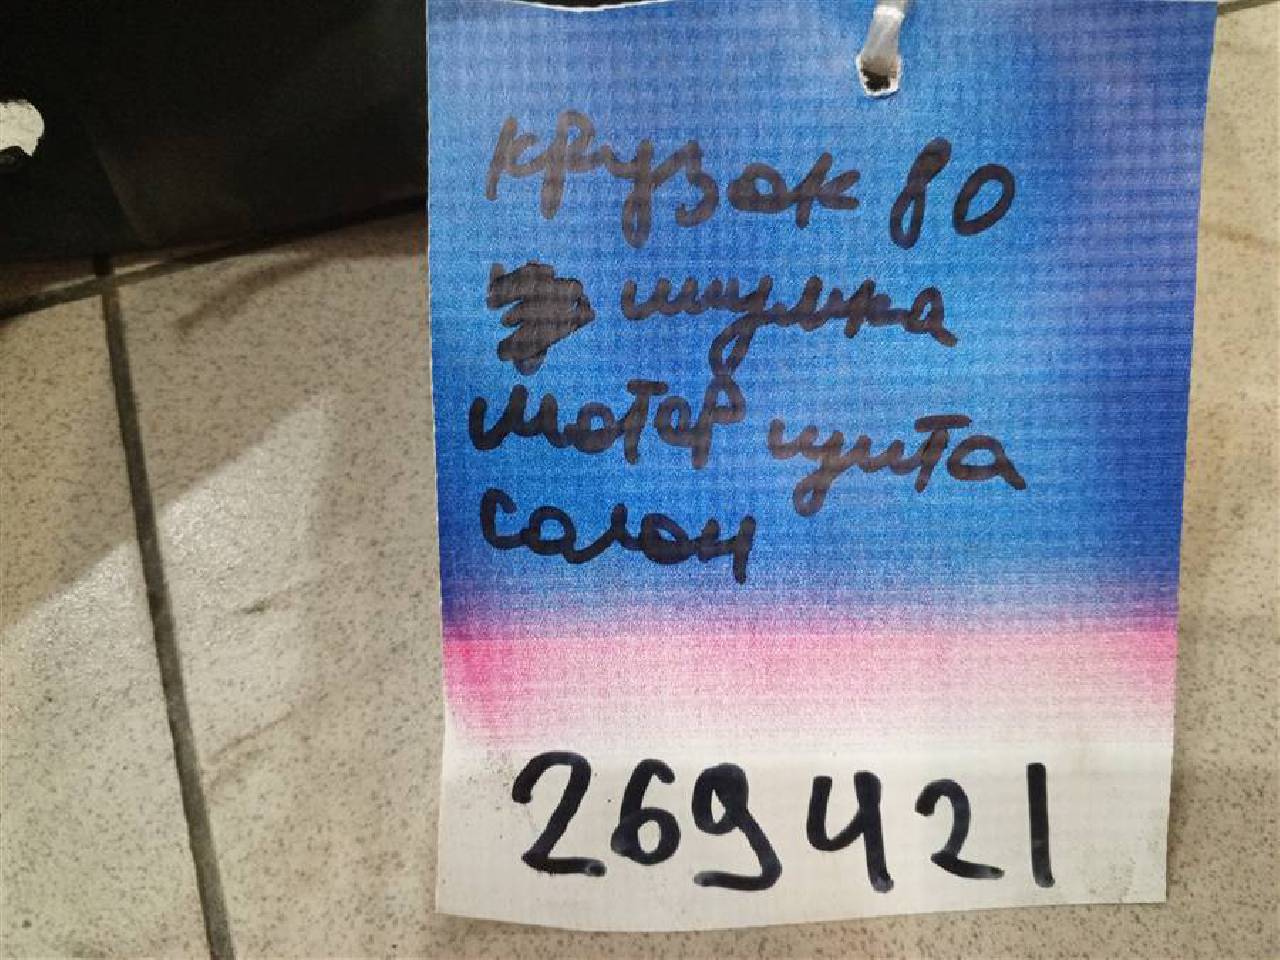 крузак 80
шумка
мотор щита
салон
269421